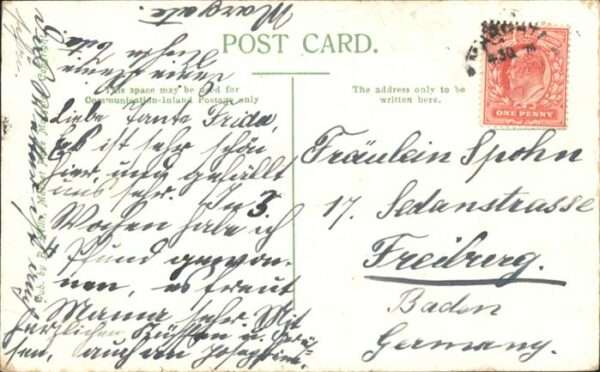 Margate.
POST CARD.
This space may be used for
Communication-Inland Postage only
The address only to be
written here.
ONE PENNY
Liebe Tante Frida,
Es ist sehr schön
hier und gefällt
uns sehr. In 3
Wochen habe ich
4 Pfund gewon-
nen, es freut
Mama sehr. Mit
herzlichen Küssen u. Grüs-
sen, auch an
Fräulein Spohn
17. Sedanstrasse
Freiberg.
Baden
Germany.